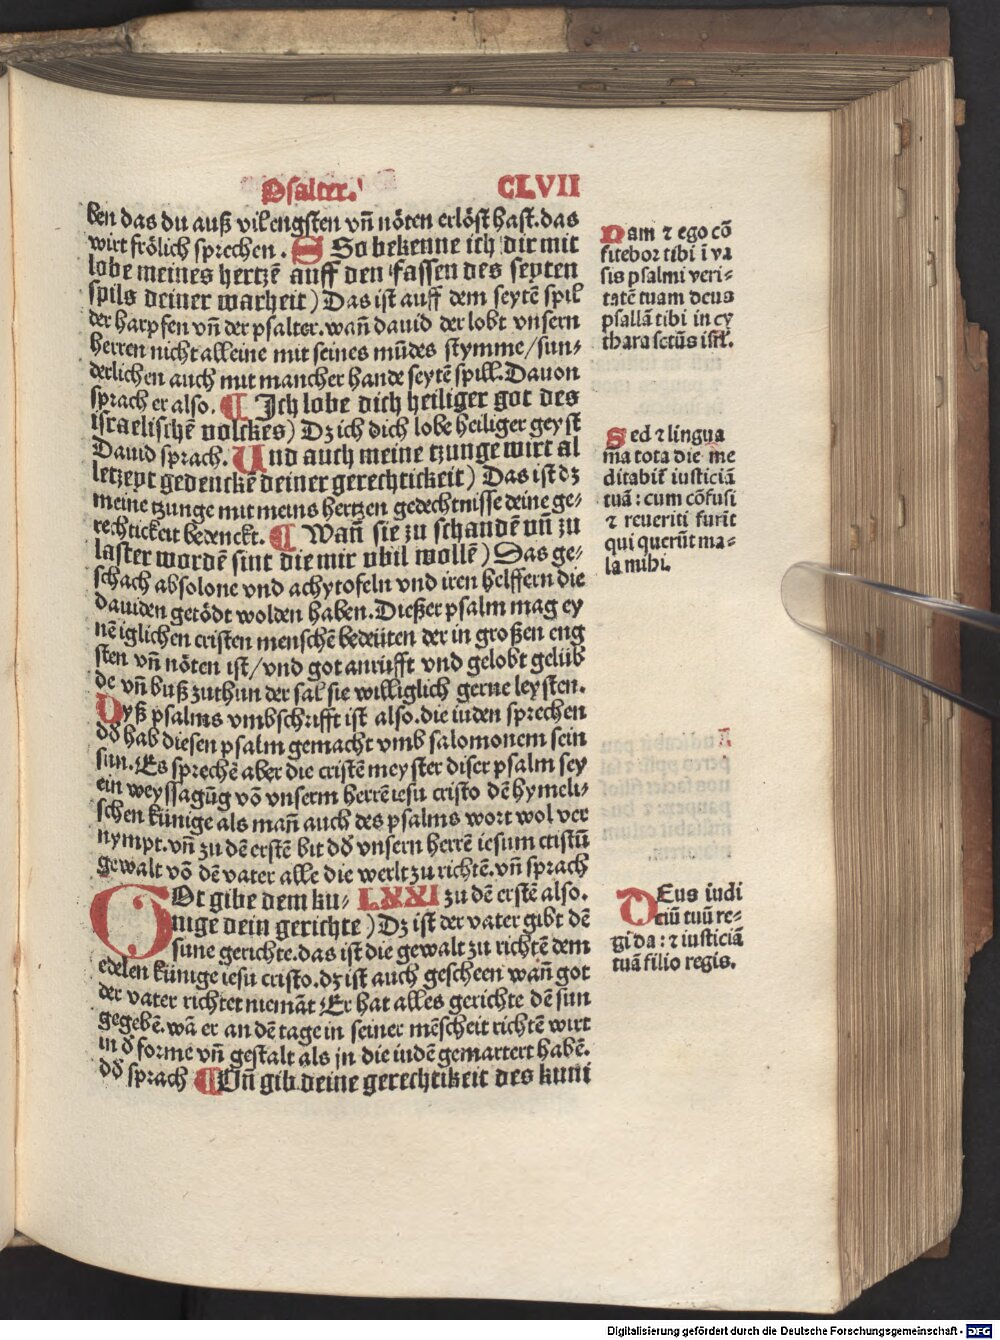 Psalter.
CLVII
ben das du auß vil engsten vñ nöten erlöst hast. das
wirt frölich sprechen. S So bekenne ich dir mit
lobe meines hertzē auff den fassen des seyten
spils deiner warheit) Das ist auff dem seytē spil
der harpfen vñ der psalter. wañ dauid der lobt vnsern
herren nicht alleine mit seines mūdes stymme/sun⸗
derlichen auch mit mancher hande seytē spill. Dauon
sprach er also. ¶ Ich lobe dich heiliger got des
israelischē volckes) Dz ich dich lobe heiliger geyst
Dauid sprach. Und auch meine tzunge wirt al
letzeyt gedenckē deiner gerechtickeit) Das ist dz
meine tzunge mit meins hertzen gedechtnisse deine ge⸗
rechtickeit bedenckt. ¶ Wañ sie zu schandē vñ zu
laster wordē sint die mir vbil wollē) Das ge⸗
schach absolone vnd achytofeln vnd iren helffern die
dauiden getödt wolden haben. Dießer psalm mag ey
nē iglichen cristen menschē bedeüten der in großen eng
sten vñ nöten ist/vnd got anrufft vnd gelobt gelüb
de vñ buß zuthun der sal sie williglich gerne leysten.
Dyß psalms vmbschrifft ist also. die iuden sprechen
dď hab diesen psalm gemacht vmb salomonem sein
sun. Es sprechē aber die cristē meyster diser psalm sey
ein weyssagūg vō vnserm herrē iesu cristo dē hymeli⸗
schen künige als mañ auch des psalms wort wol ver
nympt. vñ zu dē erstē bit dď vnsern herrē iesum cristū
gewalt vō dē vater alle die werlt zu richtē. vñ sprach
GOt gibe dem ku⸗ LXXI zu dē erstē also.
nige dein gerichte) Dz ist der vater gibt dē
sune gerichte. das ist die gewalt zu richtē dem
edelen künige iesu cristo. dz ist auch gescheen wañ got
der vater richtet niemāt Er hat alles gerichte dē sun
gegebē. wā er an dē tage in seiner mēscheit richtē wirt
in ď forme vñ gestalt als jn die iudē gemartert habē.
dď sprach ¶ Vñ gib deine gerechtikeit des kuni
Nam ⁊ ego cō
fitebor tibi ī va
sis psalmi veri⸗
tatē tuam deus
psallā tibi in cy
thara sctūs isrl̄.
Sed ⁊ lingua
mea tota die me
ditabit̄ iusticiā
tuā: cum cōfusi
⁊ reueriti fuerīt
qui querūt ma⸗
la mihi.
DEus iudi
ciū tuū re⸗
gi da: ⁊ iusticiā
tuā filio regis.
Digitalisierung gefördert durch die Deutsche Forschungsgemeinschaft - DFG